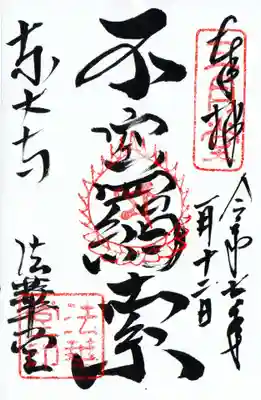 奉拝
令和年
一月十二日
不空羂索
東大寺
法華堂
法華
堂印